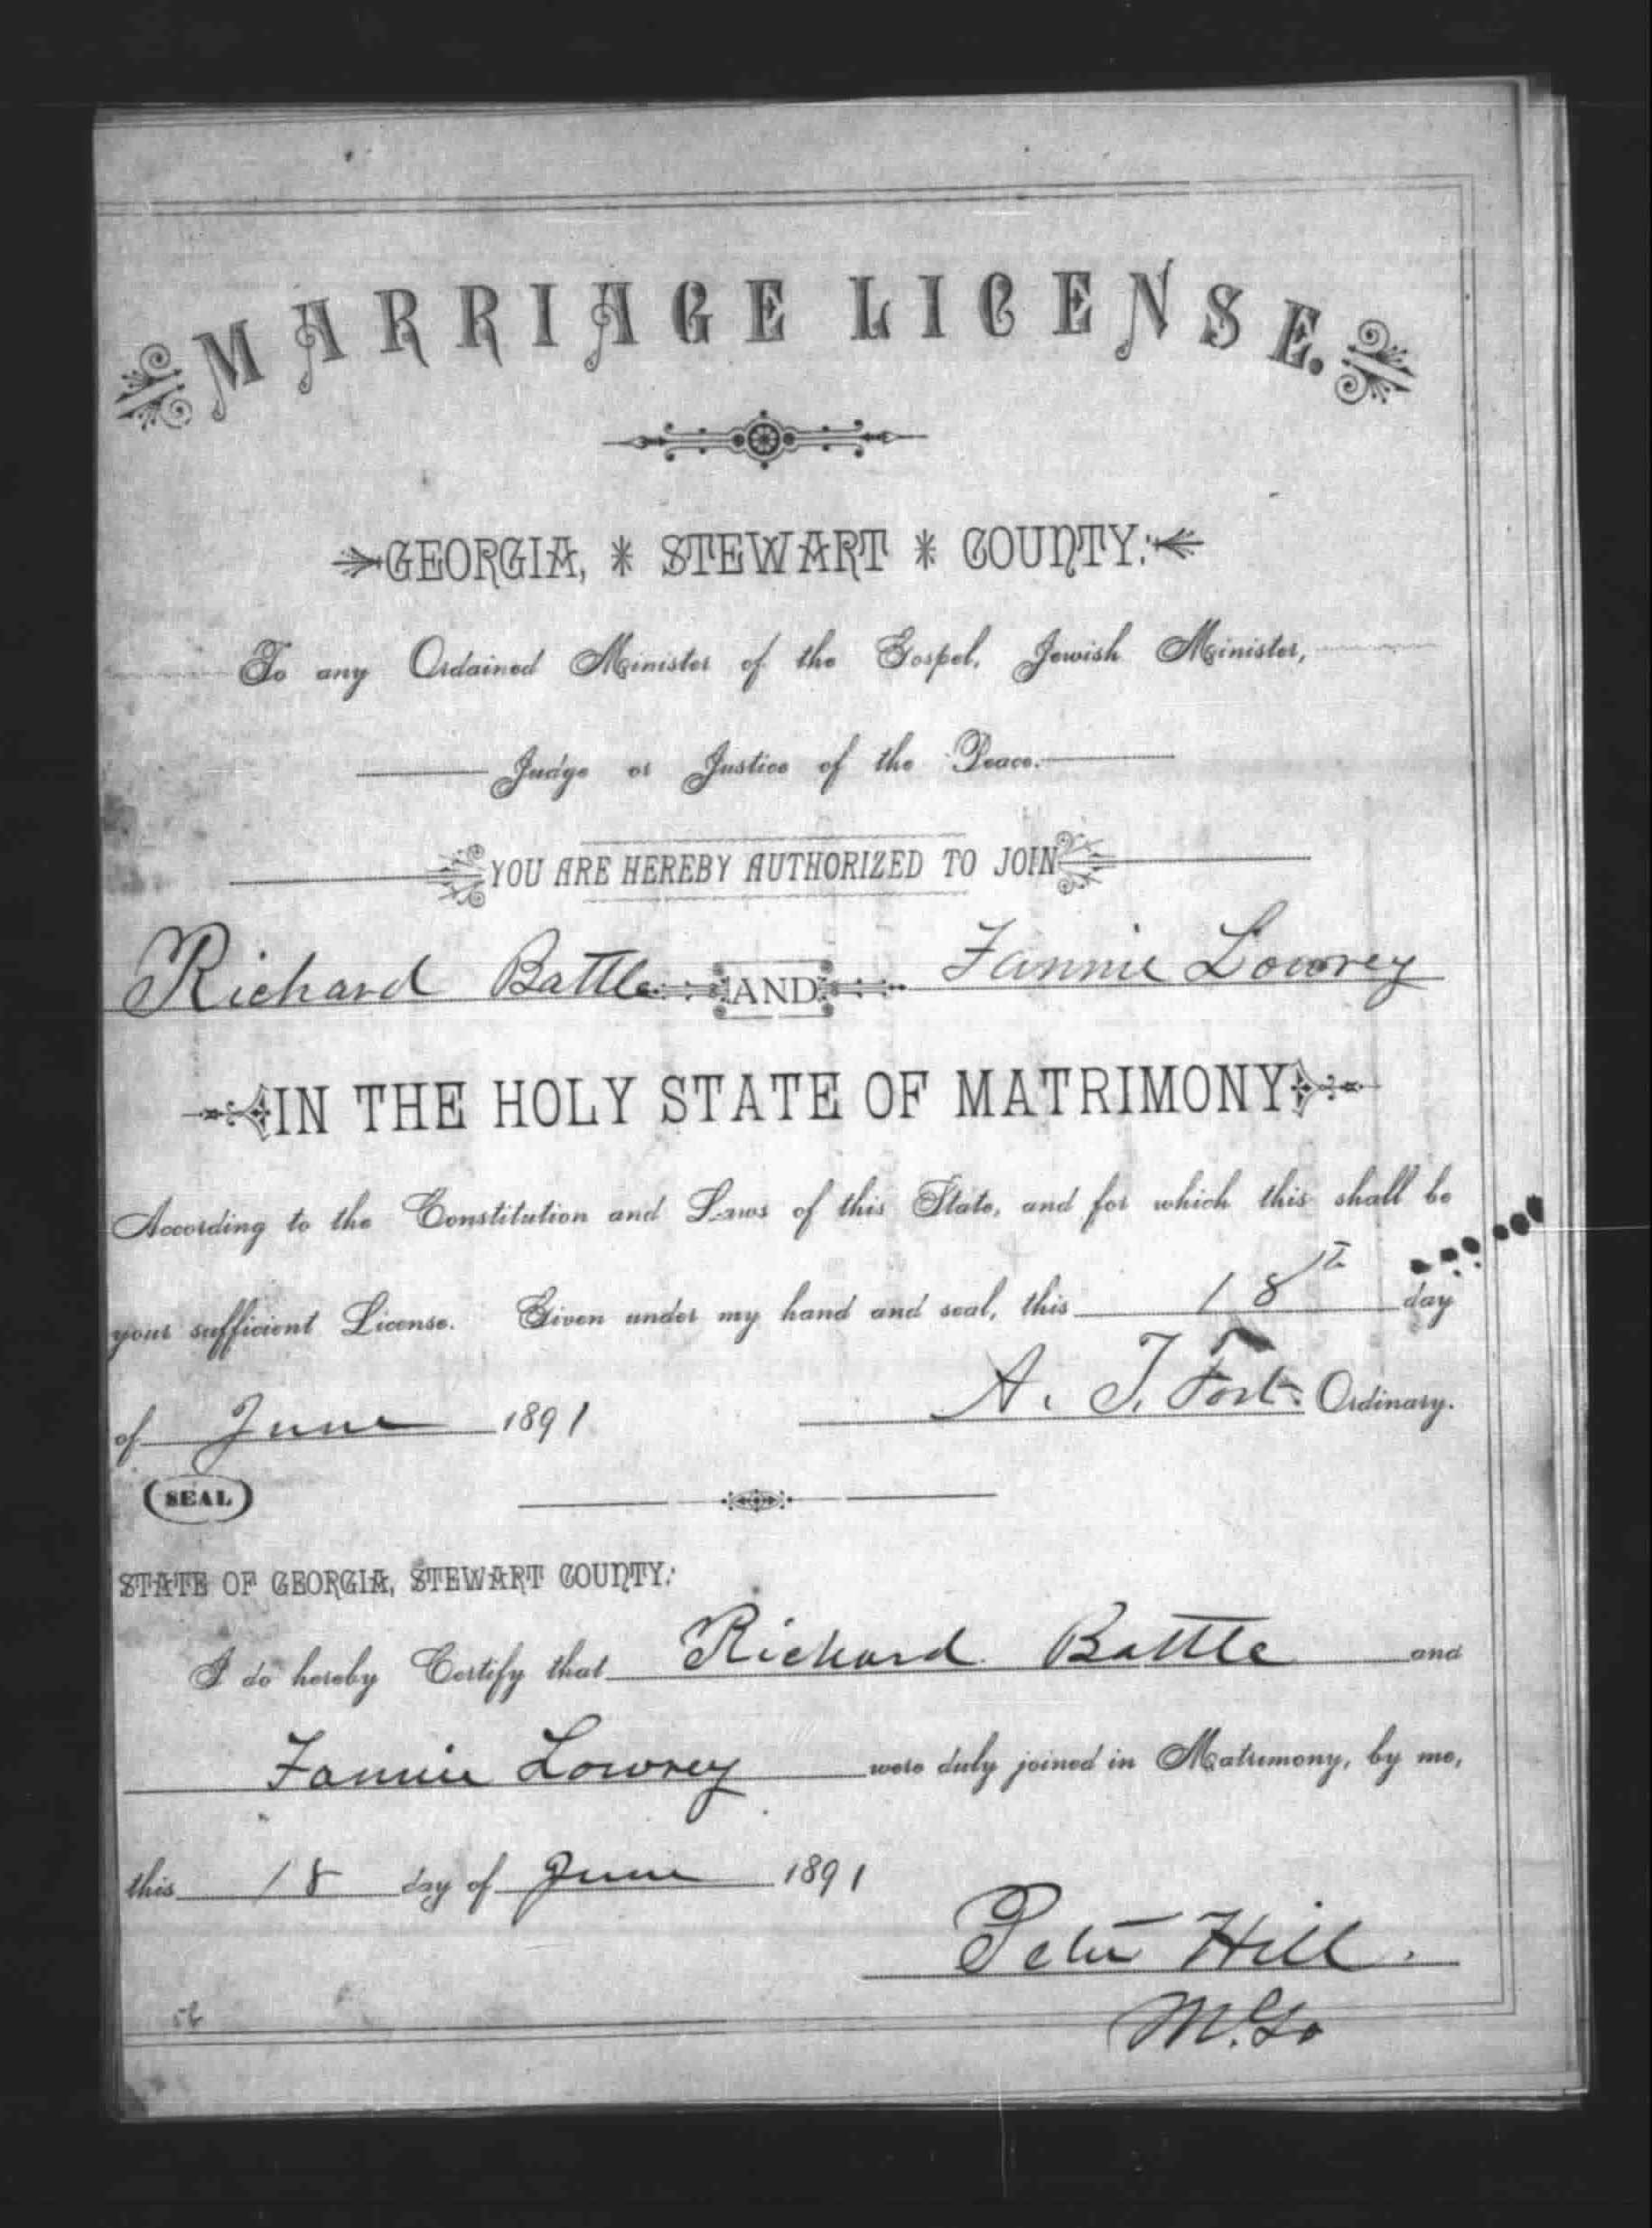 MARRIAGE LICENSE.
GEORGIA, * STEWART * COUNTY:
To any Ordained Minister of the Gospel, Jewish Minister,
Judge or Justice of the Peace.
YOU ARE HEREBY AUTHORIZED TO JOIN
Richard Battle AND Fannie Lowrey
IN THE HOLY STATE OF MATRIMONY
According to the Constitution and Laws of this State, and for which this shall be
your sufficient License. Given under my hand and seal, this 18th day
of June 1891 A. T. Fort Ordinary.
(SEAL)
STATE OF GEORGIA, STEWART COUNTY:
I do hereby Certify that Richard Battle and
Fannie Lowrey were duly joined in Matrimony, by me,
this 18 day of June 1891
Peter Hill.